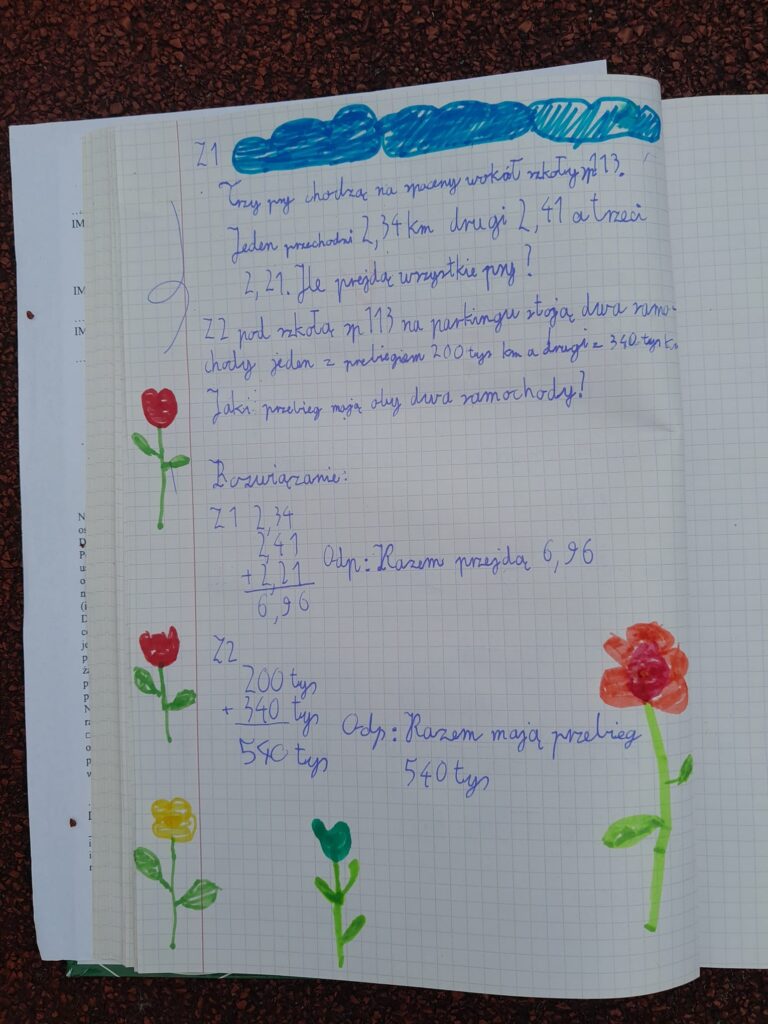 Z1
Trzy psy chodzą na spacery wokół szkoły sp 113.
Jeden przechodzi 2,34 km drugi 2,41 a trzeci
2,21. Ile prejdą wszystkie psy?
Z2 pod szkołą sp 113 na parkingu stoją dwa samo-
chody jeden z prebiegiem 200 tys km a drugi z 340 tys k.
Jaki przebieg mają oby dwa samochody?
Rozwiązanie:
Z1 2,34
2,41
+ 2,21 Odp: Razem przejdą 6,96
6,96
Z2
200 tys
+ 340 tys
540 tys Odp: Razem mają przebieg
540 tys
IM
IM
IM